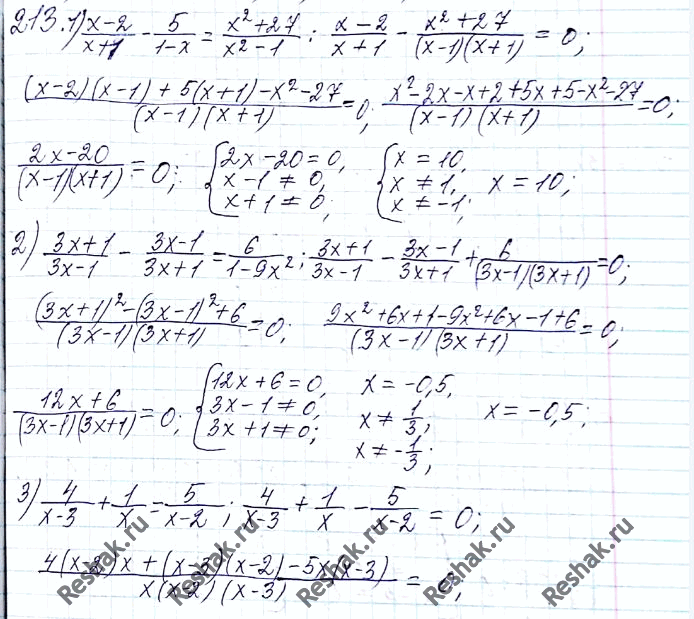 213.1) (x-2)/(x+1) - 5/(1-x) = (x²+27)/(x²-1); (x-2)/(x+1) - (x²+27)/((x-1)(x+1)) = 0;
((x-2)(x-1)+5(x+1)-x²-27)/((x-1)(x+1)) = 0; (x²-2x-x+2+5x+5-x²-27)/((x-1)(x+1)) = 0;
(2x-20)/((x-1)(x+1)) = 0; { 2x-20=0, x-1≠0, x+1≠0; { x=10, x≠1, x≠-1; x=10;
2) (3x+1)/(3x-1) - (3x-1)/(3x+1) = 6/(1-9x²); (3x+1)/(3x-1) - (3x-1)/(3x+1) + 6/((3x-1)(3x+1)) = 0;
((3x+1)²-(3x-1)²+6)/((3x-1)(3x+1)) = 0; (9x²+6x+1-9x²+6x-1+6)/((3x-1)(3x+1)) = 0;
(12x+6)/((3x-1)(3x+1)) = 0; { 12x+6=0, 3x-1≠0, 3x+1≠0; x=-0,5, x≠1/3, x≠-1/3; x=-0,5;
3) 4/(x-3) + 1/x = 5/(x-2); 4/(x-3) + 1/x - 5/(x-2) = 0;
(4(x-2)x+(x-3)(x-2)-5x(x-3))/(x(x-2)(x-3)) = 0;
Reshak.ru Reshak.ru Reshak.ru Reshak.ru